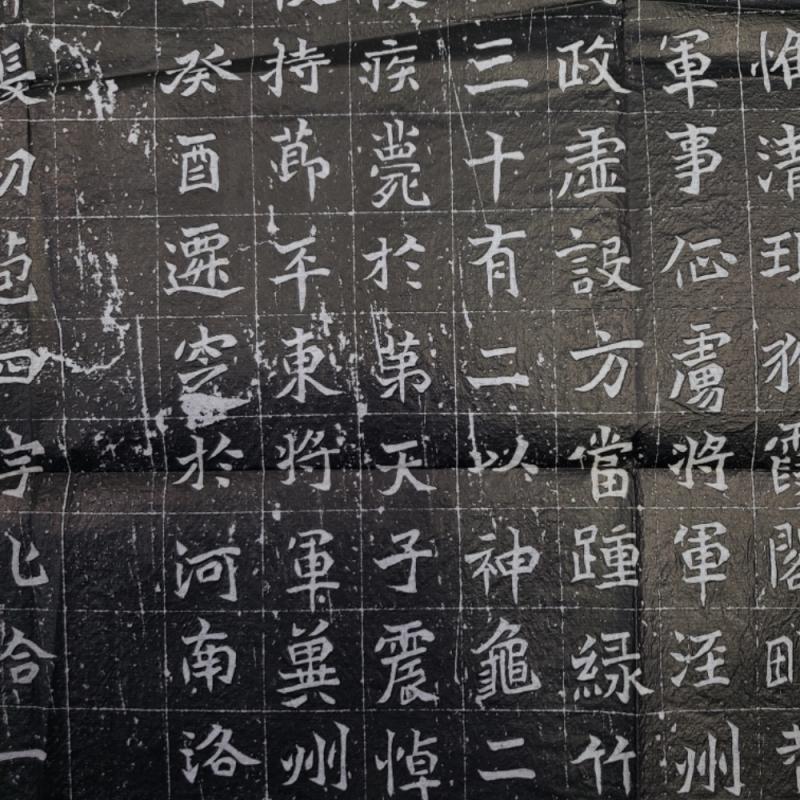 惟清霞閣
軍事征虜將軍涇州
政虛設方當踵緑竹
三十有二以神龜二
疾薨於第天子震悼
持節平東將軍冀州
癸酉遷窆於河南洛
苞四字